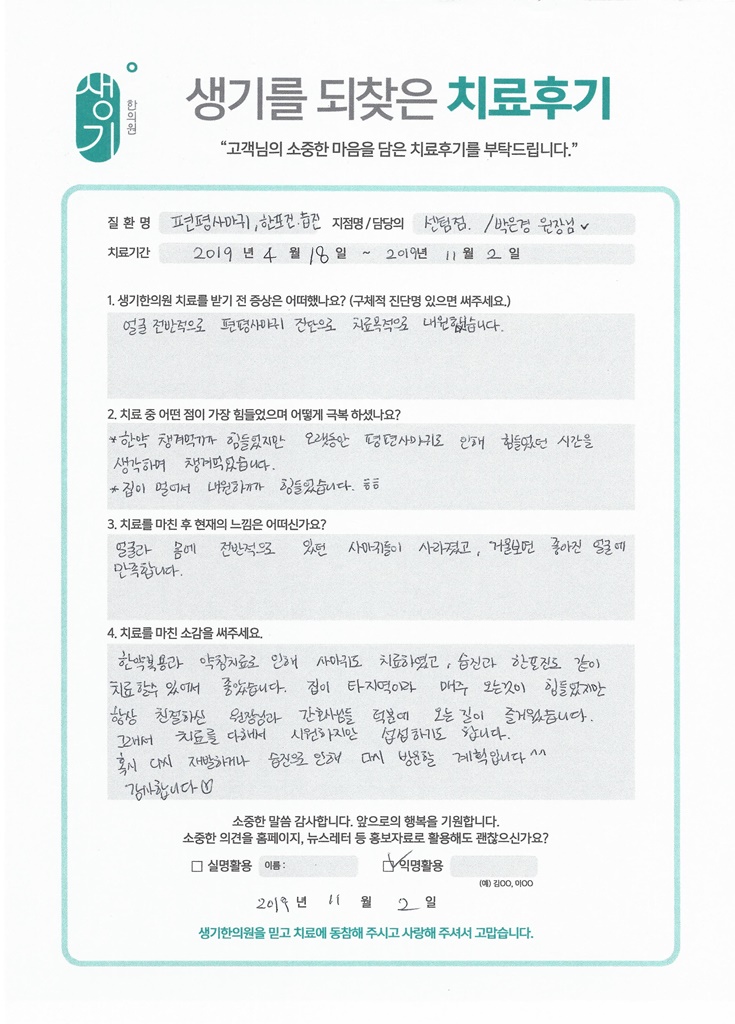 생기
한의원
생기를 되찾은 치료후기
“고객님의 소중한 마음을 담은 치료후기를 부탁드립니다.”
질 환 명 편평사마귀, 한포진.습진 지점명 / 담당의 센텀점. /박은경 원장님
치료기간 2019 년 4 월 18 일 ~ 2019년 11 월 2 일
1. 생기한의원 치료를 받기 전 증상은 어떠했나요? (구체적 진단명 있으면 써주세요.)
얼굴 전반적으로 편평사마귀 진단으로 치료목적으로 내원했습니다.
2. 치료 중 어떤 점이 가장 힘들었으며 어떻게 극복 하셨나요?
*한약 챙겨먹기가 힘들었지만 오랫동안 평편사마귀로 인해 힘들었던 시간을
생각하며 챙겨먹었습니다.
*집이 멀어서 내원하기가 힘들었습니다. ㅎㅎ
3. 치료를 마친 후 현재의 느낌은 어떠신가요?
얼굴과 몸에 전반적으로 있던 사마귀들이 사라졌고, 거울보면 좋아진 얼굴에
만족합니다.
4. 치료를 마친 소감을 써주세요.
한약복용과 약침치료로 인해 사마귀도 치료하였고, 습진과 한포진도 같이
치료할수 있어서 좋았습니다. 집이 타지역이라 매주 오는것이 힘들었지만
항상 친절하신 원장님과 간호사님들 덕분에 오는 길이 즐거웠습니다.
그래서 치료를 다해서 시원하지만 섭섭하기도 합니다.
혹시 다시 재발하거나 습진으로 인해 다시 방문할 계획입니다^^
감사합니다♡
소중한 말씀 감사합니다. 앞으로의 행복을 기원합니다.
소중한 의견을 홈페이지, 뉴스레터 등 홍보자료로 활용해도 괜찮으신가요?
□ 실명활용 이름 : ☑ 익명활용
(예) 김OO, 이OO
2019 년 11 월 2 일
생기한의원을 믿고 치료에 동참해 주시고 사랑해 주셔서 고맙습니다.